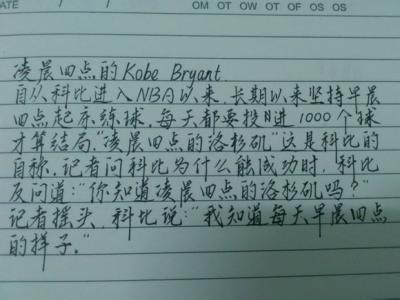 DATE / /
OM OT OW OT OF OS OS
凌晨四点的Kobe Bryant
自从科比进入NBA以来,长期以来坚持早晨
四点起床练球,每天都要投进1000个球
才算结局,"凌晨四点的洛杉矶"这是科比的
自称,记者问科比为什么能成功时,科比
反问道:"你知道凌晨四点的洛杉矶吗?"
记者摇头,科比说:"我知道每天早晨四点
的样子。"